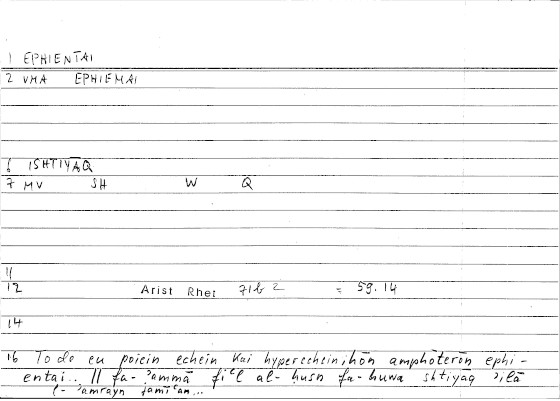 1 EPHIENTAI
2 VMA EPHIEMAI
6 ISHTIYĀQ
7 MV SH W Q
11
12 Arist Rhet 71b 2 = 59.14
14
16 To de eu poiein echein kai hyperechein, hōn amphoterōn ephi-
entai.. || fa-'ammā fi'l al-ḥusn fa-huwa shtiyāq 'ilā
l-'amrayn jamī'an...